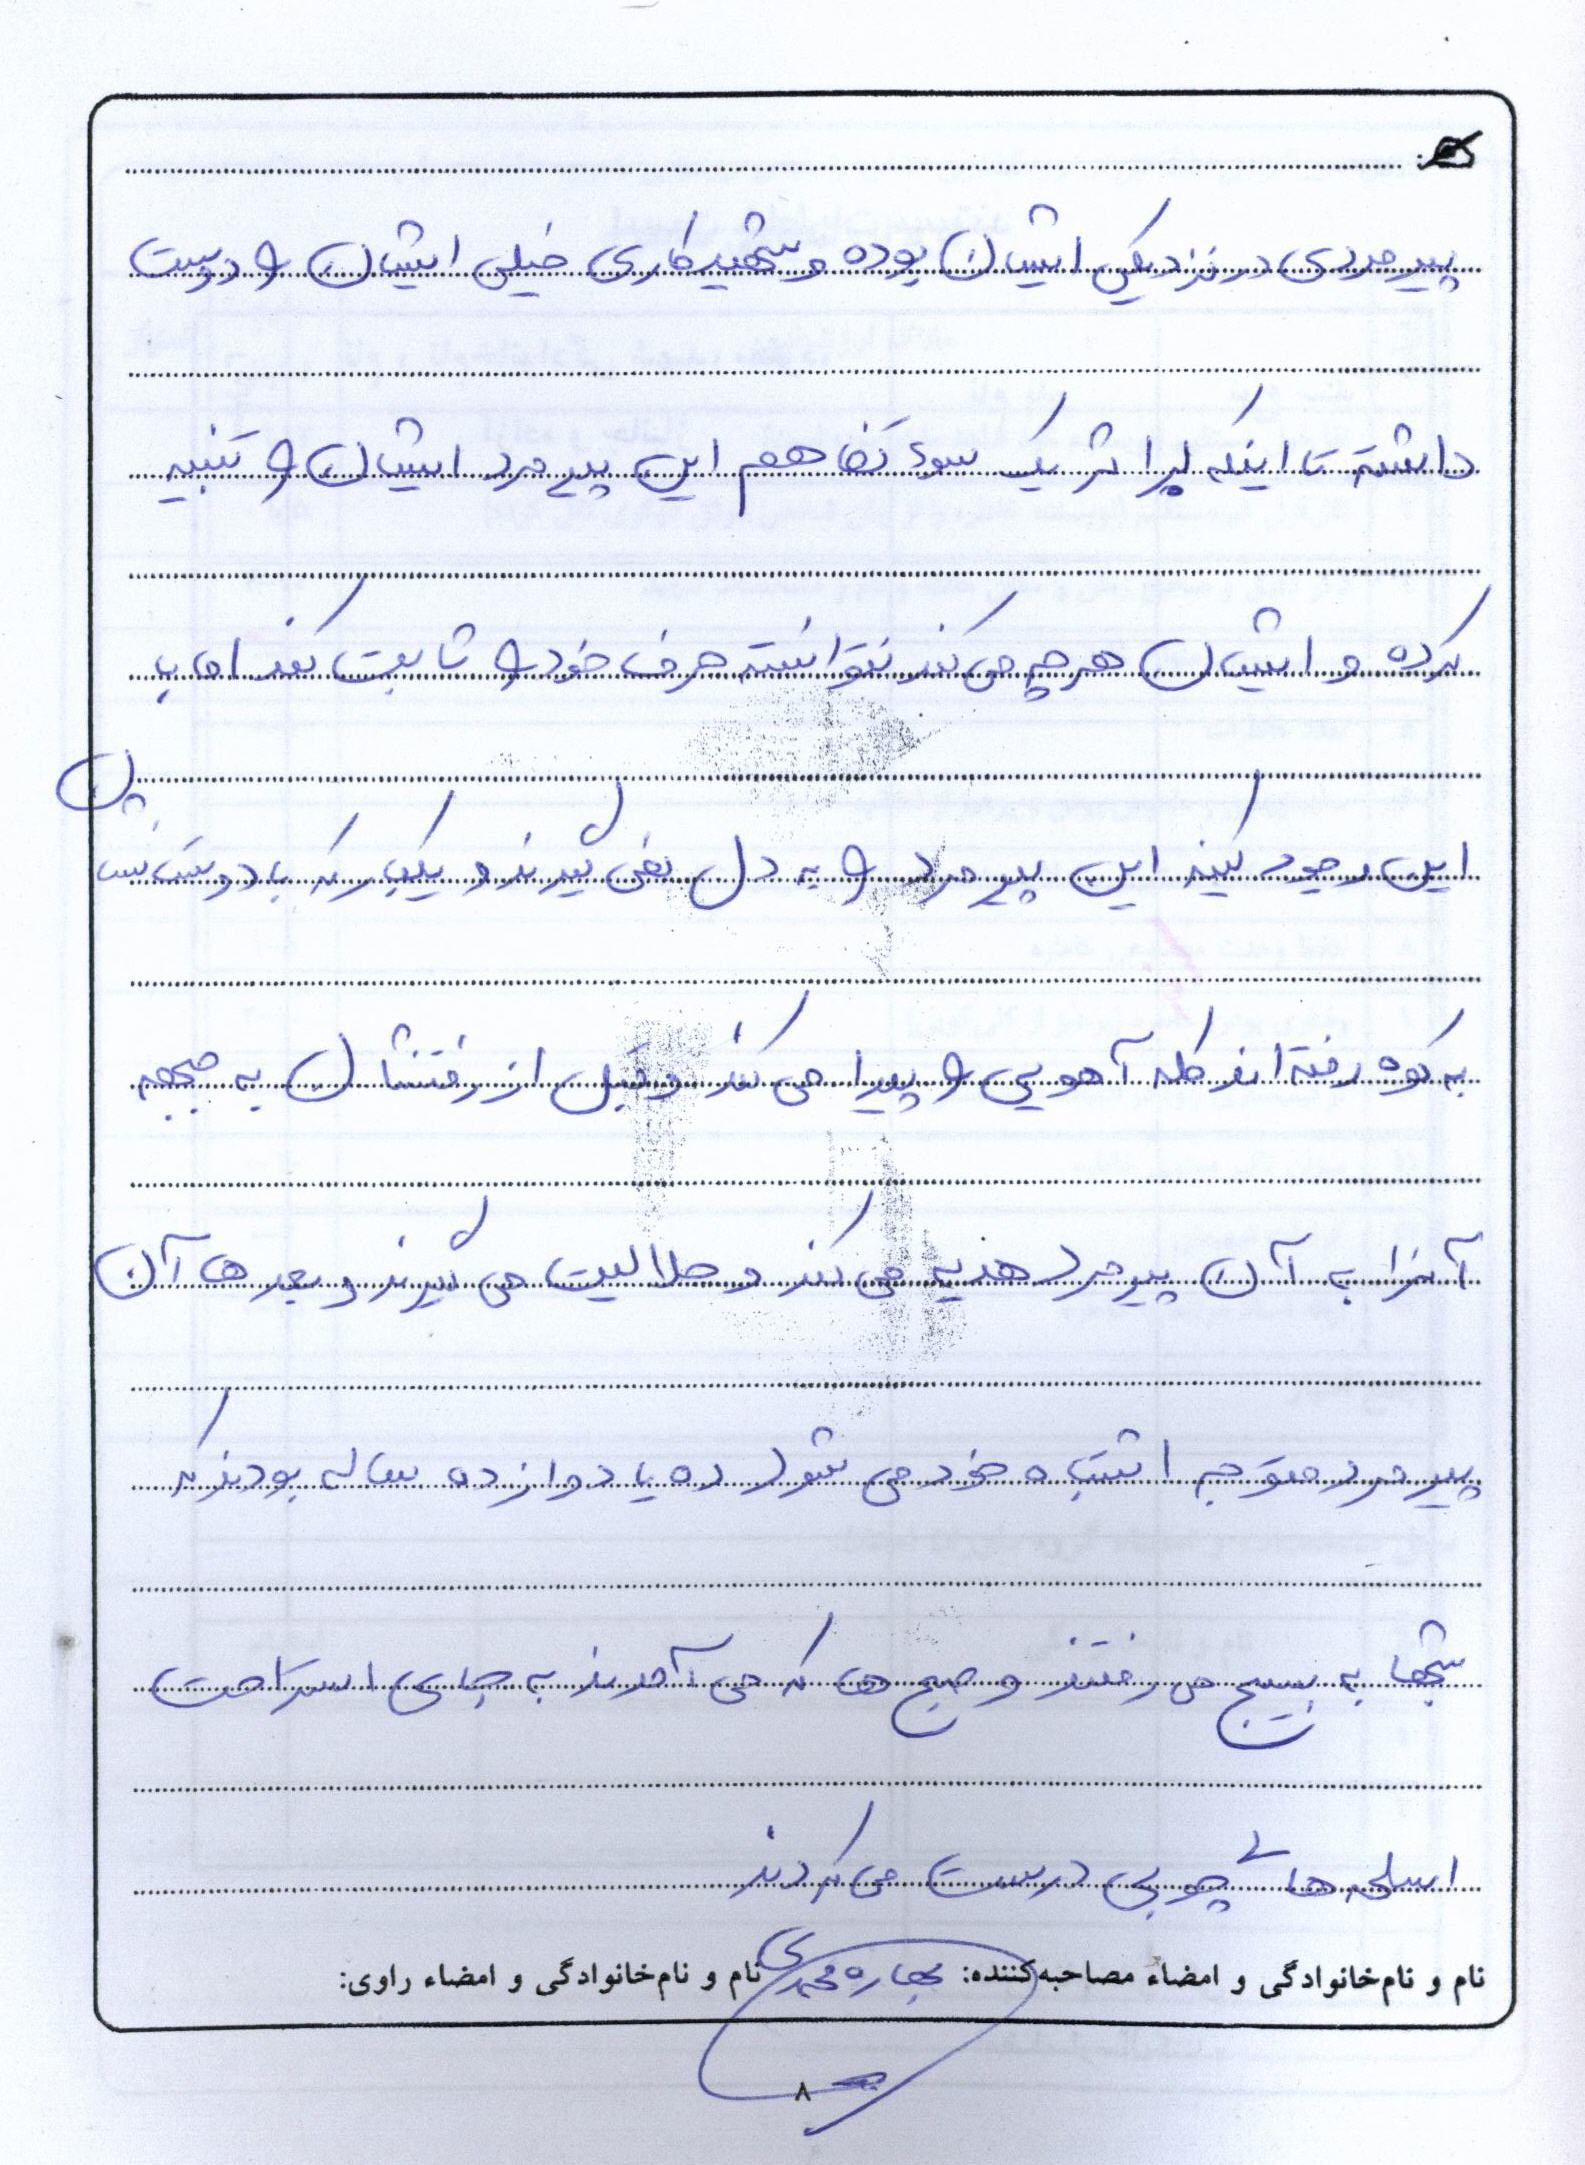 پیرمردی در نزدیکی ایشان بوده و شهید کاری خیلی ایشان و دوست
داشته تا اینکه بر اثر یک سوء تفاهم این پیرمرد ایشان و تنبیه
کرده و ایشان هرچه می کند نتوانسته حرف خود و ثابت کند اما با
این وجود کینه این پیرمرد و به دل نمی گیرند و یکبار که با دوستانشان
به کوه رفته اند کله آهویی و پیدا می کند و قبل از رفتنشان به جبهه
آنرا به آن پیرمرد هدیه می کند و حلالیت می گیرند و بعدها آن
پیرمرد متوجه اشتباه خود می شود ده یا دوازده ساله بودند که
شبها به بسیج می رفتند و صبح ها که می آمدند به جای استراحت
اسلحه های چوبی درست می کردند
نام و نام‌خانوادگی و امضاء مصاحبه‌کننده: بهاره محمدی نام و نام‌خانوادگی و امضاء راوی:
۸